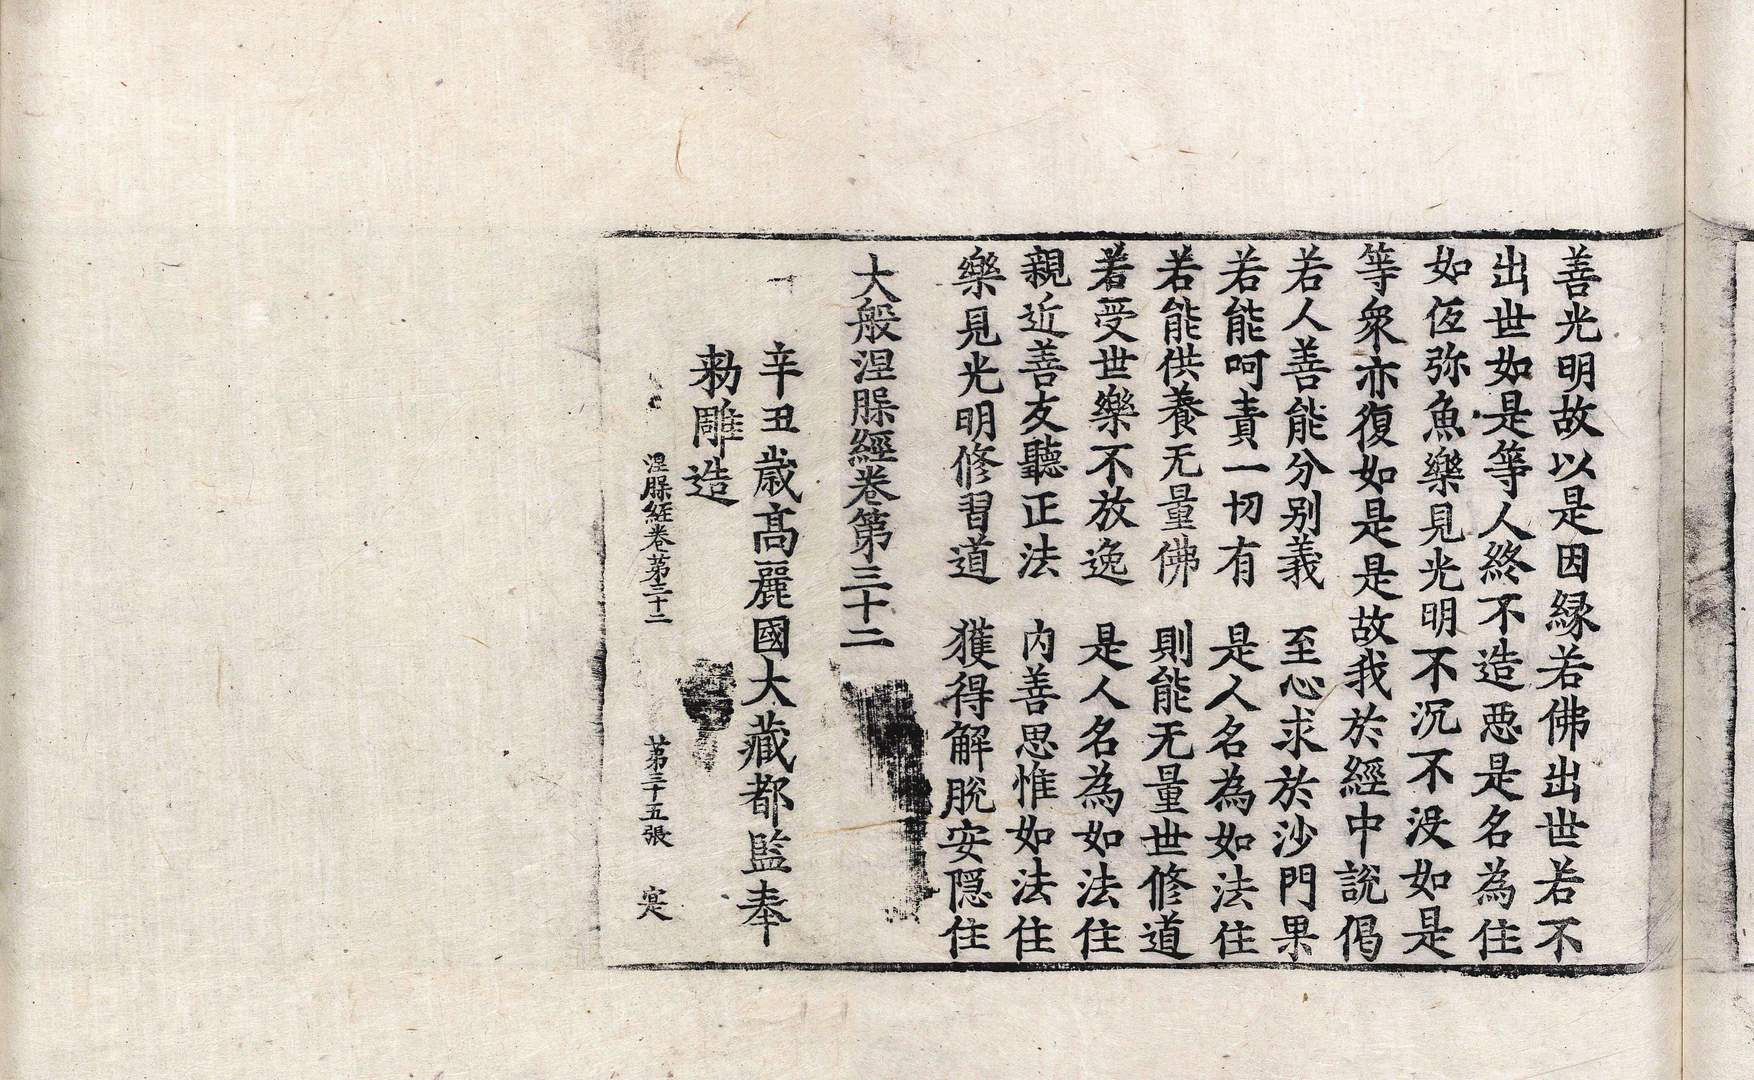 善光明故以是因縁若佛出世若不
出世如是等人終不造惡是名為住
如㤚弥魚樂見光明不沉不没如是
等衆亦復如是是故我於經中說偈
若人善能分别義　至心求於沙門果
若能呵責一切有　是人名為如法住
若能供養无量佛　則能无量世修道
若受世樂不放逸　是人名為如法住
親近善友聽正法　内善思惟如法住
樂見光明修習道　獲得解脫安隠住
大般涅槃經卷第三十二
辛丑歲髙麗國大藏都監奉
勑雕造
涅槃経卷苐三十二　苐三十五張　寔